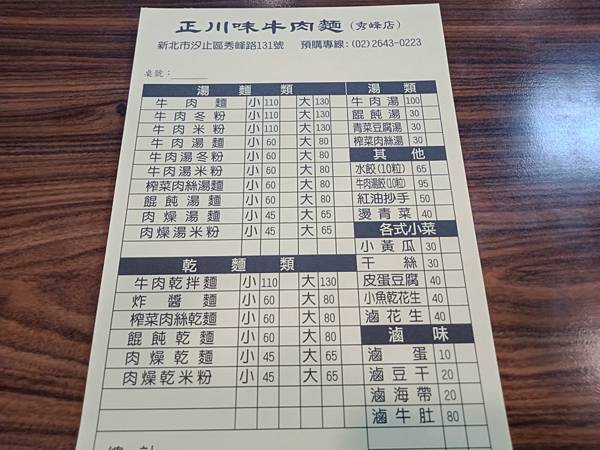 正川味牛肉麵(秀峰店)
新北市汐止區秀峰路131號 預購專線:(02)2643-0223
桌號:
湯麵類
牛肉麵 小 110 大 130
牛肉冬粉 小 110 大 130
牛肉米粉 小 110 大 130
牛肉湯麵 小 60 大 80
牛肉湯冬粉 小 60 大 80
牛肉湯米粉 小 60 大 80
榨菜肉絲湯麵 小 60 大 80
餛飩湯麵 小 60 大 80
肉燥湯麵 小 45 大 65
肉燥湯米粉 小 45 大 65
乾麵類
牛肉乾拌麵 小 110 大 130
炸醬麵 小 60 大 80
榨菜肉絲乾麵 小 60 大 80
餛飩乾麵 小 60 大 80
肉燥乾麵 小 45 大 65
肉燥乾米粉 小 45 大 65
總計
湯類
牛肉湯 100
餛飩湯 30
青菜豆腐湯 30
榨菜肉絲湯 30
其他
水餃(10粒) 65
牛肉湯餃(10粒) 95
紅油抄手 50
燙青菜 40
各式小菜
小黃瓜 30
干絲 30
皮蛋豆腐 40
小魚乾花生 40
滷花生 40
滷味
滷蛋 10
滷豆干 20
滷海帶 20
滷牛肚 80